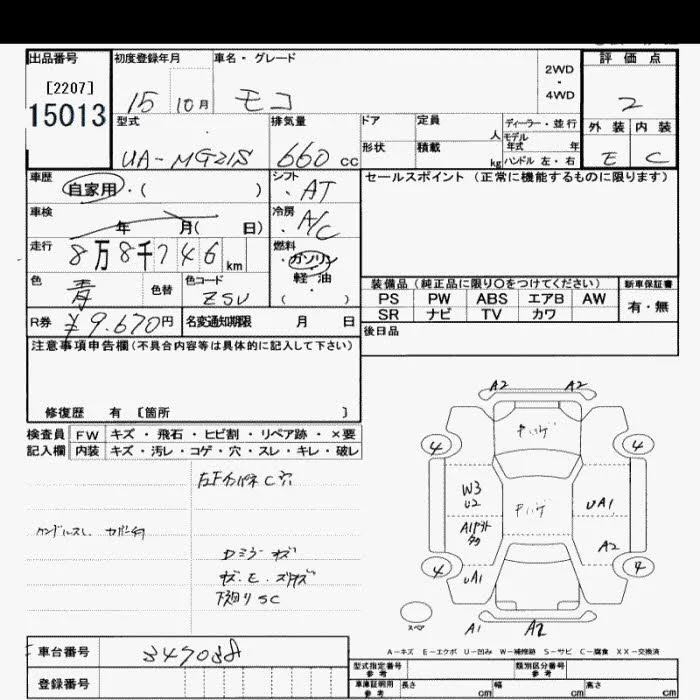 出品番号
[2207]
15013
初度登録年月
15 10月
車名・グレード
モコ
2WD
・
4WD
評価点
2
外装 内装
E C
型式
UA-MG21S
排気量
660 cc
ドア
定員
人
形状
積載
kg
ディーラー・並行
モデル
年式 年
ハンドル 左・右
車歴
自家用・( )
シフト
・AT
車検
年 月( 日)
冷房
・A/C
走行
8万8千746km
燃料
ガソリン
軽・油
・( )
色
青
色替
色コード
ZSU
R券
¥9.670円
名変通知期限 月 日
セールスポイント(正常に機能するものに限ります)
装備品(純正品に限り〇をつけてください)
新車保証書
PS PW ABS エアB AW
有・無
SR ナビ TV カワ
後日品
注意事項申告欄(不具合内容等は具体的に記入して下さい)
修復歴 有 〔箇所 〕
検査員 FW キズ・飛石・ヒビ割・リペア跡・×要
記入欄 内装 キズ・汚レ・コゲ・穴・スレ・キレ・破レ
ハンドルスレ
Dミラーキズ
下廻りSC
A2 A2
4 4
W3
U2
UA1
A2
4 4
UA1
A1 A2
スペア
A-キズ E-エクボ U-凹み W-補修跡 S-サビ C-腐食 XX-交換済
車台番号
登録番号
型式指定番号
参考
類別区分番号
参考
車庫証明用
参考
長さ cm 幅 cm 高さ cm